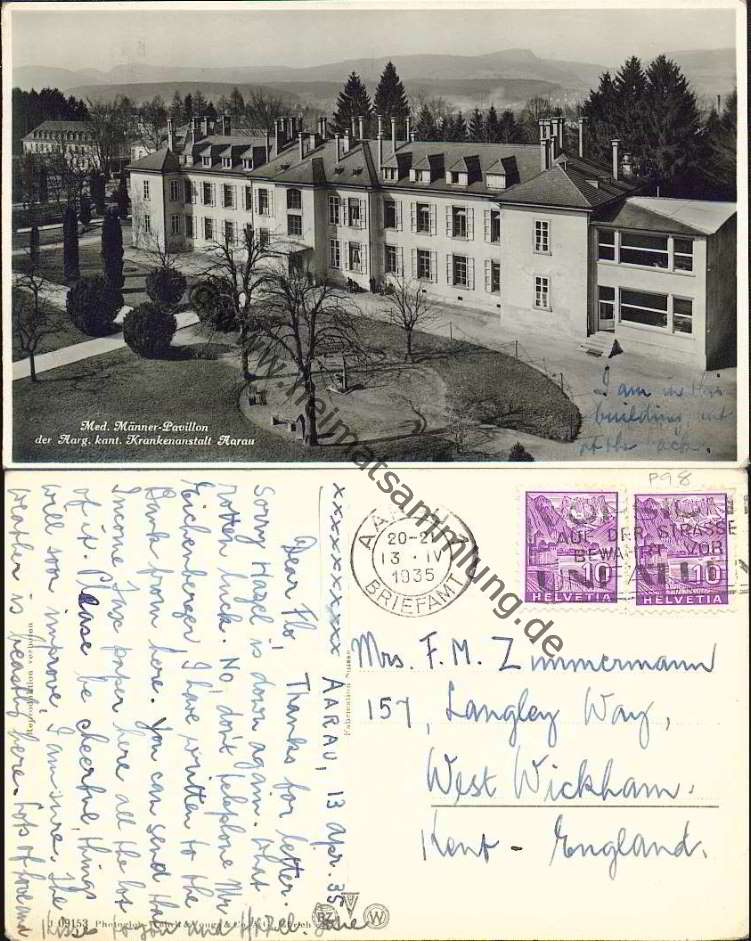 Med. Männer-Pavillon
der Aarg. kant. Krankenanstalt Aarau
I am in this
building,
at the back.
heimatsammlung.de
P98
AARAU
20-21
13.IV
1935
BRIEFAMT
VORSICHT
AUF DER STRASSE
BEWAHRT VOR
UNFALL
10
HELVETIA
10
HELVETIA
Mrs. F. M. Zimmermann
157, Langley Way,
West Wickham.
Kent - England.
Fabrication Suisse
xxxxxxxxxx AARAU, 13 Apr. 35
Dear Flo, Thanks for letter.
Sorry Hazel is down again. What
rotten luck. No, don't telephone Mr
Eichenberger, I have written to the
Bank from here. You can send the
Income Tax paper here all the lot
of it. Please be cheerful, things
will soon improve, I am sure. The
weather is beastly here. Lots of love and
kisses to you and Hazel.
Reproduktion verboten
J 09153